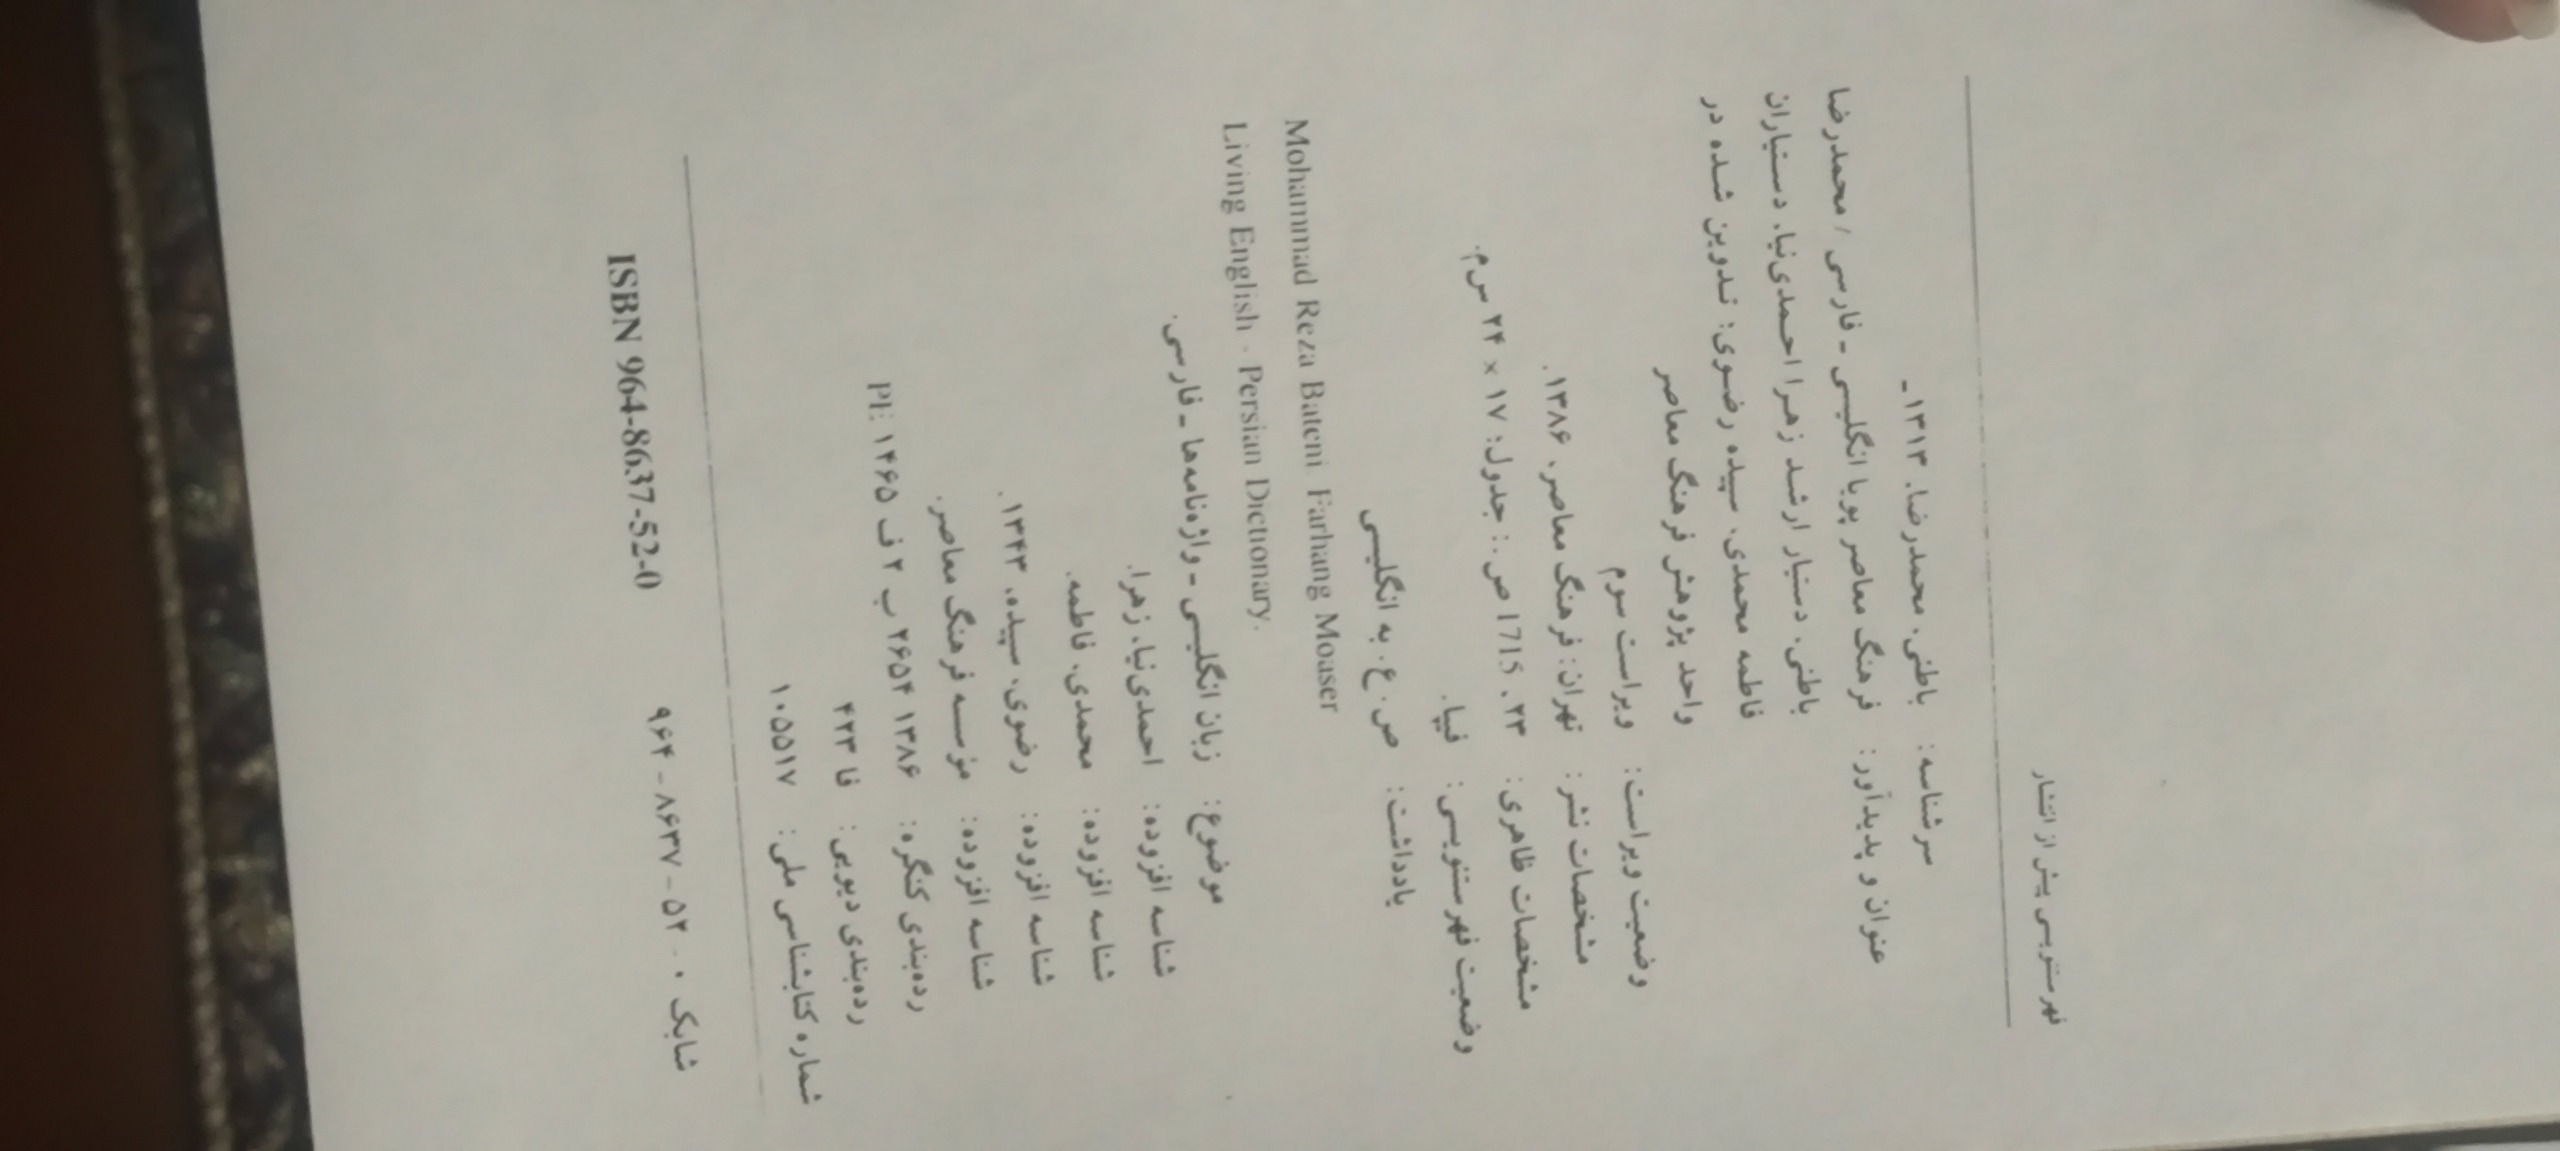 فهرستنویسی پیش از انتشار
سرشناسه: باطنی، محمدرضا، ۱۳۱۳-
عنوان و پدیدآور: فرهنگ معاصر پویا انگلیسی - فارسی / محمدرضا
باطنی، دستیار ارشد زهرا احمدی‌نیا، دستیاران
فاطمه محمدی، سپیده رضوی؛ تدوین شده در
واحد پژوهش فرهنگ معاصر
وضعیت ویراست: ویراست سوم
مشخصات نشر: تهران: فرهنگ معاصر، ۱۳۸۶.
مشخصات ظاهری: ۲۳، 1715 ص.: جدول؛ ۱۷ × ۲۴ س‌م.
وضعیت فهرستنویسی: فیپا.
یادداشت: ص. ع. به انگلیسی
Mohammad Reza Bateni Farhang Moaser
Living English - Persian Dictionary.
موضوع: زبان انگلیسی - واژه‌نامه‌ها - فارسی.
شناسه افزوده: احمدی‌نیا، زهرا.
شناسه افزوده: محمدی، فاطمه.
شناسه افزوده: رضوی، سپیده، ۱۳۴۳.
شناسه افزوده: مؤسسه فرهنگ معاصر.
رده‌بندی کنگره: ۱۳۸۶ ۲۶۵۴ ب ۲ ف ۱۴۶۵ PE
رده‌بندی دیویی: ۴۲۳ فا
شماره کتابشناسی ملی: ۱۰۵۵۱۷
شابک ۰ - ۵۲ - ۸۶۳۷ - ۹۶۴ ISBN 964-8637-52-0